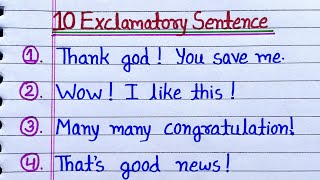 10 Exclamatory Sentence
1. Thank god! You save me.
2. Wow! I like this!
3. Many many congratulation!
4. That's good news!